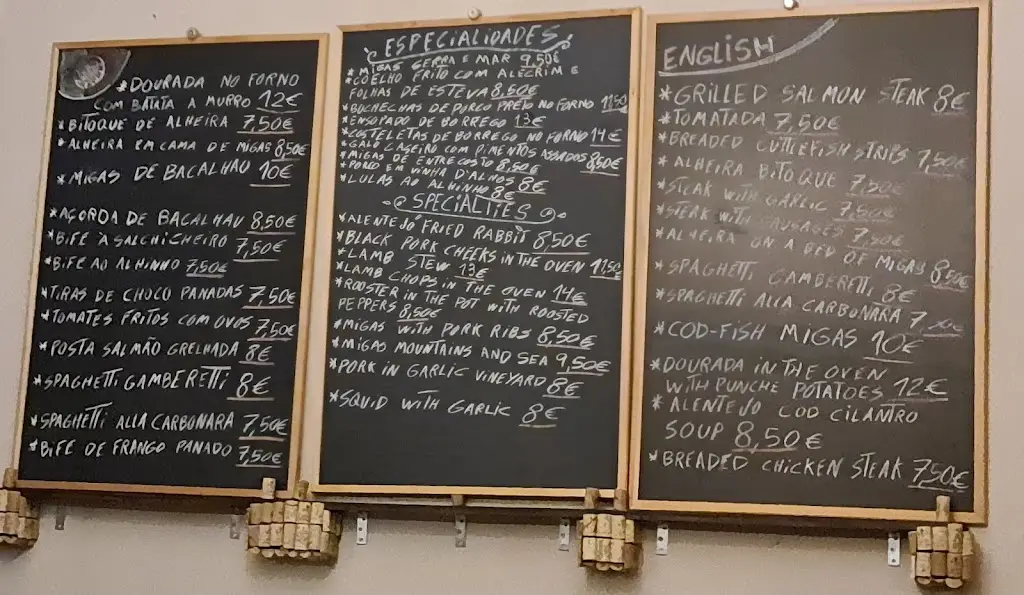 *DOURADA NO FORNO
COM BATATA A MURRO 12€
*BITOQUE DE ALHEIRA 7,50€
*ALHEIRA EM CAMA DE MIGAS 8,50€
*MIGAS DE BACALHAU 10€
*AÇORDA DE BACALHAU 8,50€
*BIFE À SALCHICHEIRO 7,50€
*BIFE AO ALHINHO 7,50€
*TIRAS DE CHOCO PANADAS 7,50€
*TOMATES FRITOS COM OVOS 7,50€
*POSTA SALMÃO GRELHADA 8€
*SPAGHETTI GAMBERETTI 8€
*SPAGHETTI ALLA CARBONARA 7,50€
*BIFE DE FRANGO PANADO 7,50€
ESPECIALIDADES
*MIGAS SERRA E MAR 9,50€
*COELHO FRITO COM ALECRIM E
FOLHAS DE ESTEVA 8,50€
*BOCHECHAS DE PORCO PRETO NO FORNO 11,50
*ENSOPADO DE BORREGO 13€
*COSTELETAS DE BORREGO NO FORNO 14€
*GALO CASEIRO COM PIMENTOS ASSADOS 8,50€
*MIGAS DE ENTRECOSTO 8,50€
*PORCO EM VINHA D'ALHOS 8€
*LULAS AO ALHINHO 8€
SPECIALTIES
*ALENTEJO FRIED RABBIT 8,50€
*BLACK PORK CHEEKS IN THE OVEN 11,50
*LAMB STEW 13€
*LAMB CHOPS IN THE OVEN 14€
*ROOSTER IN THE POT WITH ROOSTED
PEPPERS 8,50€
*MIGAS WITH PORK RIBS 8,50€
*MIGAS MOUNTAINS AND SEA 9,50€
*PORK IN GARLIC VINEYARD 8€
*SQUID WITH GARLIC 8€
ENGLISH
*GRILLED SALMON STEAK 8€
*TOMATADA 7,50€
*BREADED CUTTLEFISH STRIPS 7,50€
*ALHEIRA BITOQUE 7,50€
*STEAK WITH GARLIC 7,50€
*STEAK WITH SAUSAGES 7,50€
*ALHEIRA ON A BED OF MIGAS 8,50€
*SPAGHETTI GAMBERETTI 8€
*SPAGHETTI ALLA CARBONARA 7,50€
*COD-FISH MIGAS 10€
*DOURADA IN THE OVEN
WITH PUNCHE POTATOES 12€
*ALENTEJO COD CILANTRO
SOUP 8,50€
*BREADED CHICKEN STEAK 7,50€